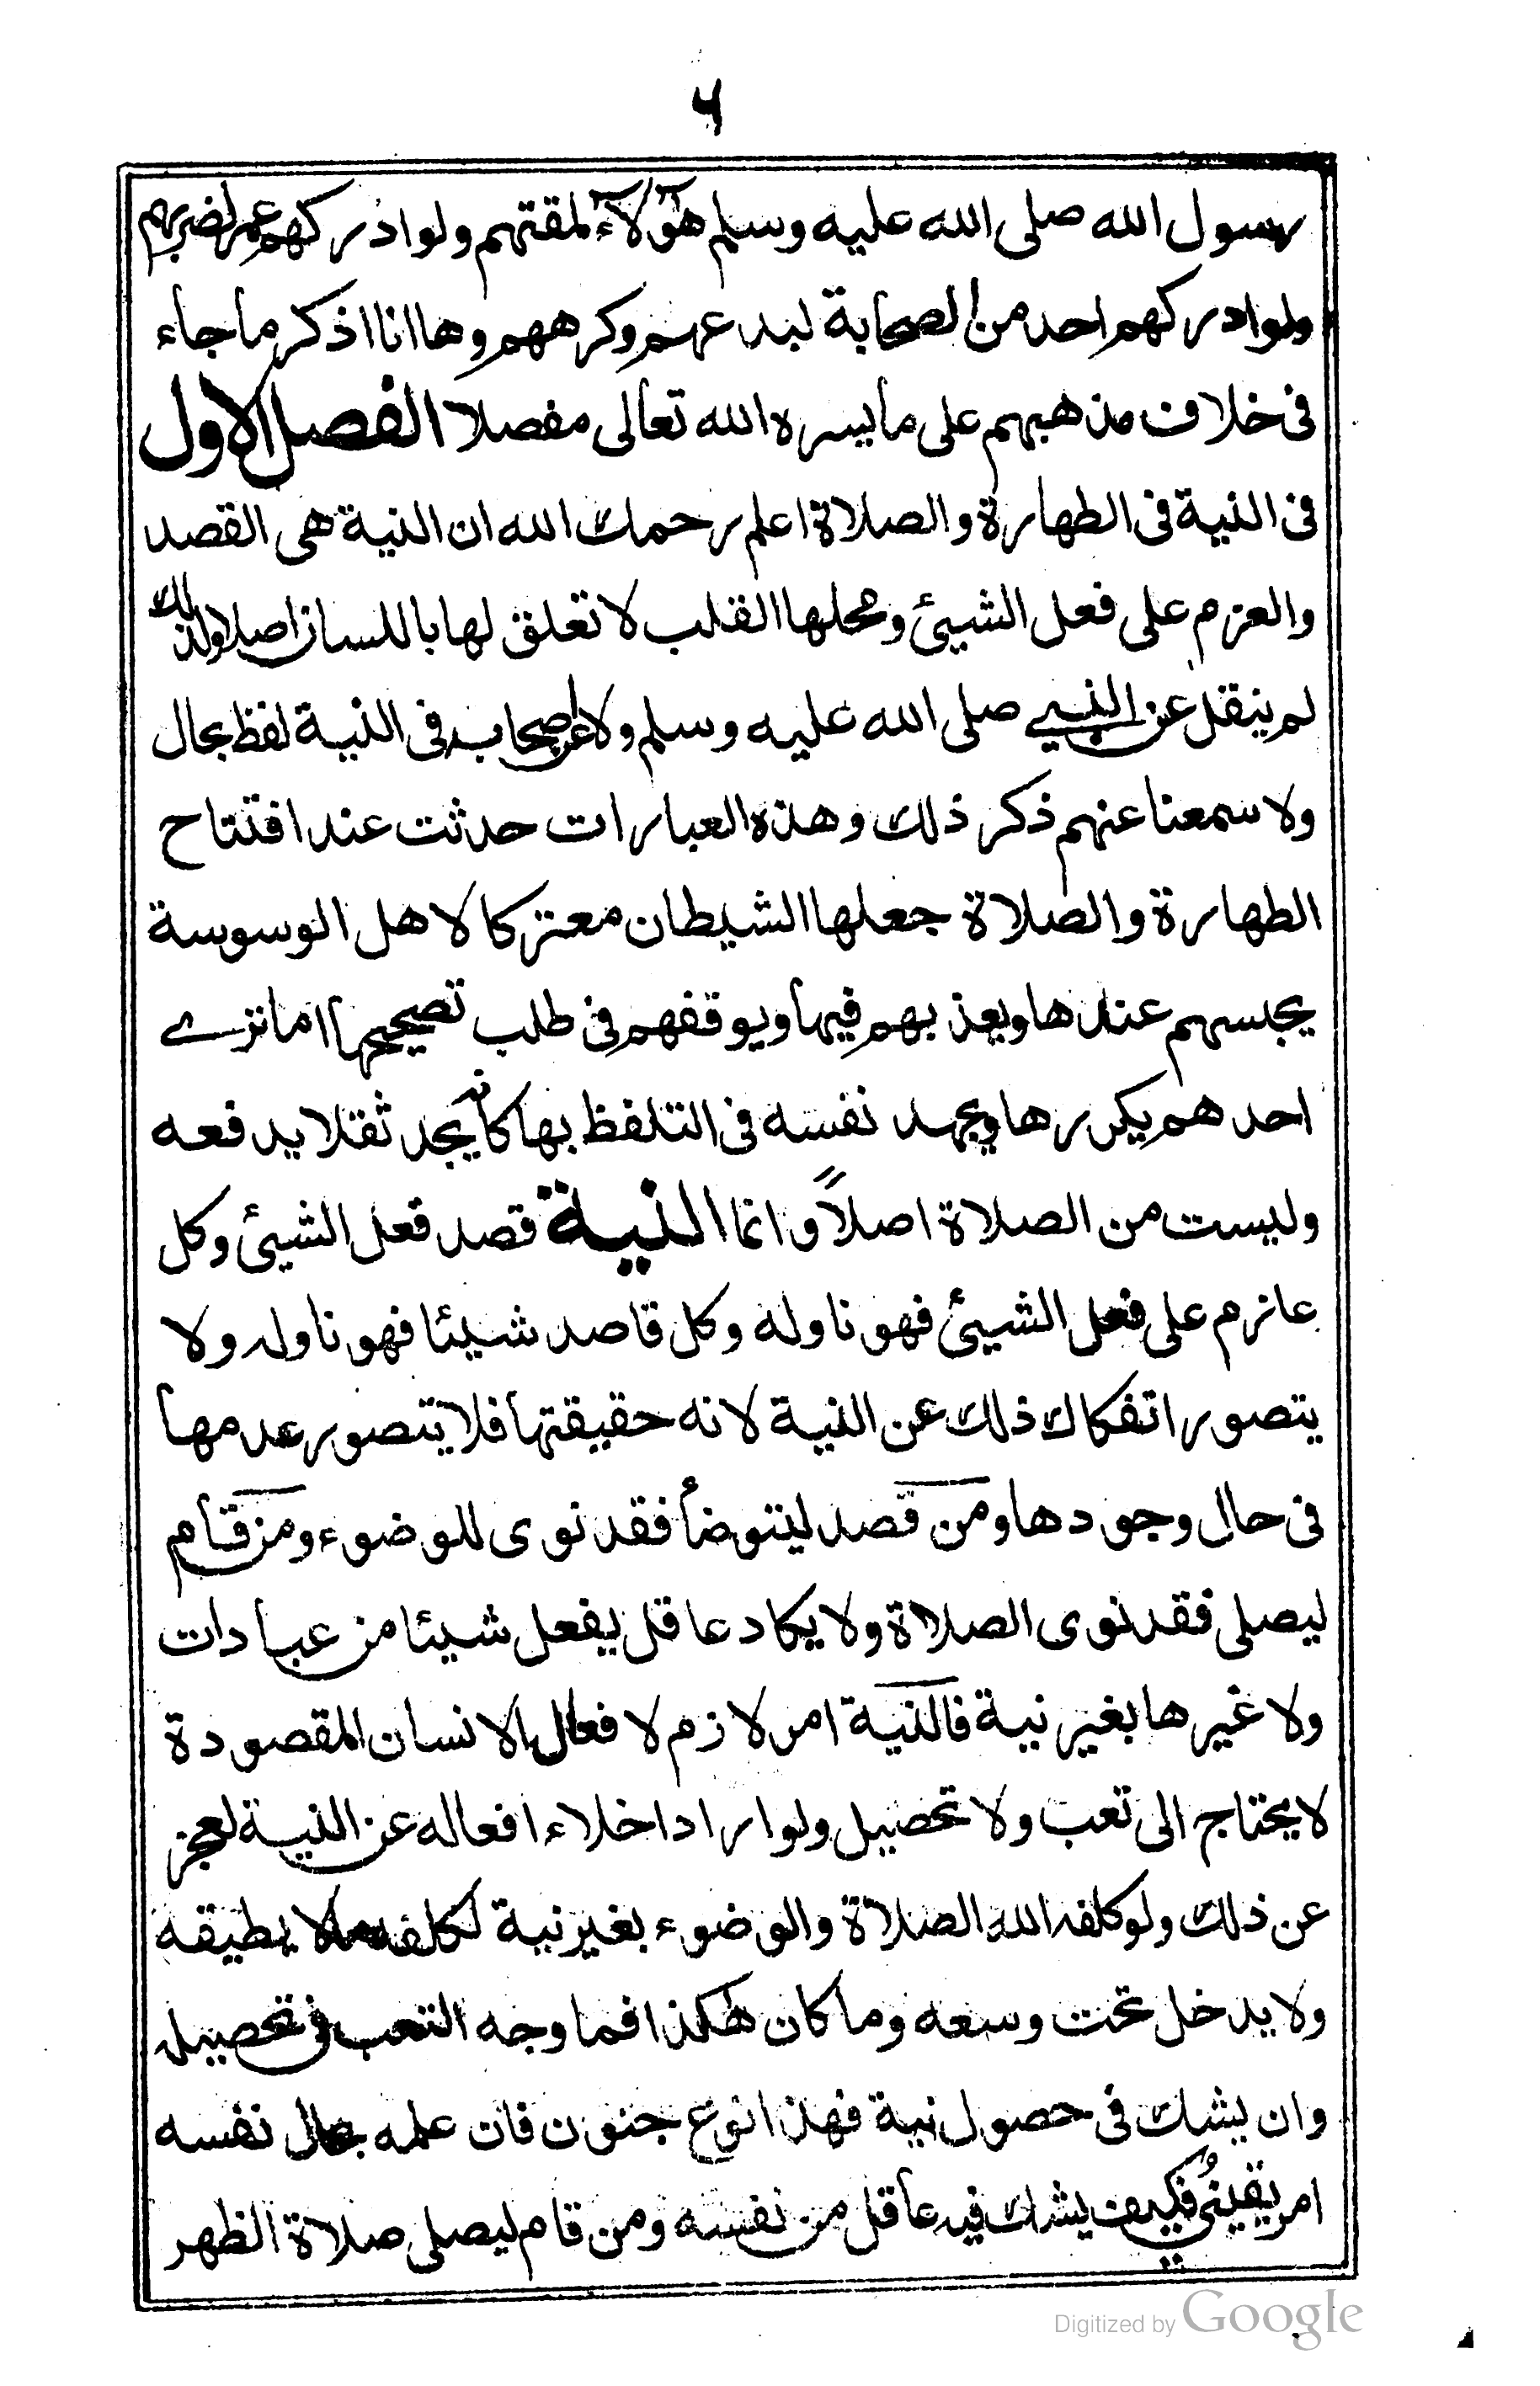 ٦
رسول الله صلى الله عليه وسلم هؤلاء لمقتهم ولو ادركهم عمر لضربهم
ولو ادركهم احد من الصحابة لبدعهم وكرههم وها انا اذكر ما جاء
فى خلاف مذهبهم على ما يسره الله تعالى مفصلا الفصل الاول
فى النية فى الطهارة والصلاة اعلم رحمك الله ان النية هى القصد
والعزم على فعل الشيئ ومحلها القلب لا تعلق لها باللسان اصلا ولذلك
لم ينقل عن النبي صلى الله عليه وسلم ولا عن اصحابه فى النية لفظ بحال
ولا سمعنا عنهم ذكر ذلك وهذه العبارات حدثت عند افتتاح
الطهارة والصلاة جعلها الشيطان معتركا لاهل الوسوسة
يحبسهم عندها ويعذبهم فيها ويوقفهم فى طلب تصحيحها اما ترے
احدهم يكررها ويجهد نفسه فى التلفظ بها كأنه يجد ثقلا يدفعه
وليست من الصلاة اصلاً وانما النية قصد فعل الشيئ وكل
عازم على فعل الشيئ فهو ناو له وكل قاصد شيئا فهو ناو له ولا
يتصور اتفكاك ذلك عن النية لانه حقيقتها فلا يتصور عدمها
فى حال وجودها ومن قصد ليتوضأ فقد نوى للوضوء ومن قام
ليصلى فقد نوى الصلاة ولا يكاد عاقل يفعل شيئا من عبادات
ولا غيرها بغير نية فالنية امر لازم لافعال الانسان المقصودة
لا يحتاج الى تعب ولا تحصيل ولو اراد اخلاء افعاله عن النية لعجز
عن ذلك ولو كلفه الله الصلاة والوضوء بغير نية لكلفه ما لا يطيقه
ولا يدخل تحت وسعه وما كان هكذا فما وجه التعب فى تحصيله
وان يشك فى حصول نية فهذا نوع جنون فان علمه بحال نفسه
امر يقينىُ فكيف يشك فيه عاقل من نفسه ومن قام ليصلى صلاة الظهر
Digitized by Google